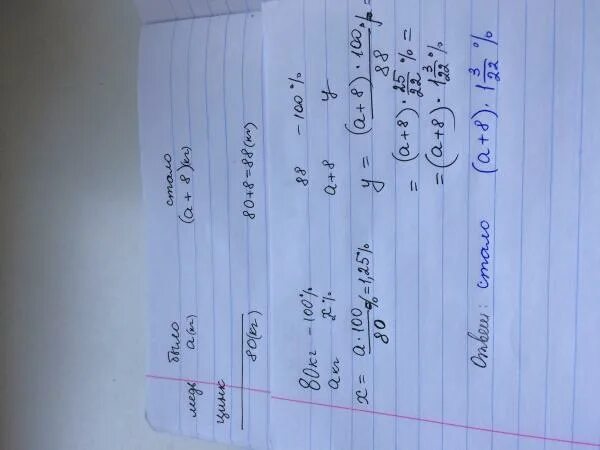 было стало
медь a(кг) (a + 8)(кг)
цинк
80(кг) 80+8=88(кг)
80кг – 100% 88 – 100%
a кг x% a+8 y
x = a·100/80 % = 1,25% y = (a+8)·100%/88 =
= (a+8)·25/22 % =
= (a+8)·1 3/22 %
Ответ: стало (a+8)·1 3/22 %